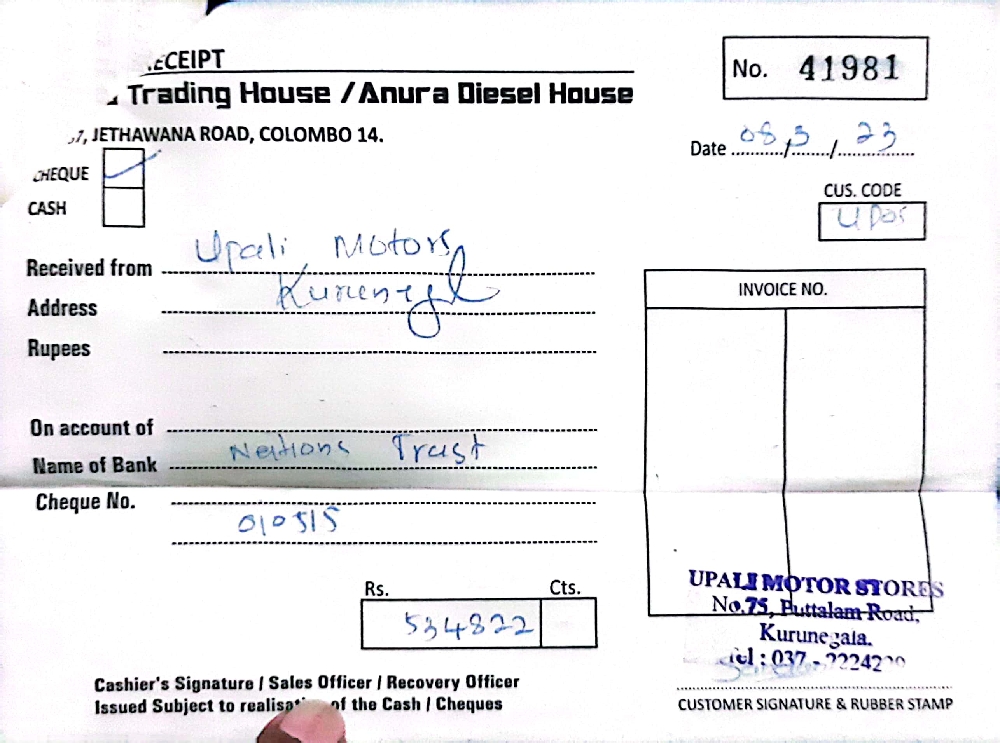 RECEIPT
No. 41981
Trading House / Anura Diesel House
JETHAWANA ROAD, COLOMBO 14.
Date 08/3/23
CHEQUE
CUS. CODE
CASH
Upali Motors
Received from
Kurunegl
Address
INVOICE NO.
Rupees
On account of
Nations Trust
Name of Bank
Cheque No.
010515
Rs. Cts.
534822
UPALI MOTOR STORES
No.75, Puttalam Road,
Kurunegala.
Tel : 037 -
Cashier's Signature / Sales Officer / Recovery Officer
Issued Subject to realisation of the Cash / Cheques
CUSTOMER SIGNATURE & RUBBER STAMP